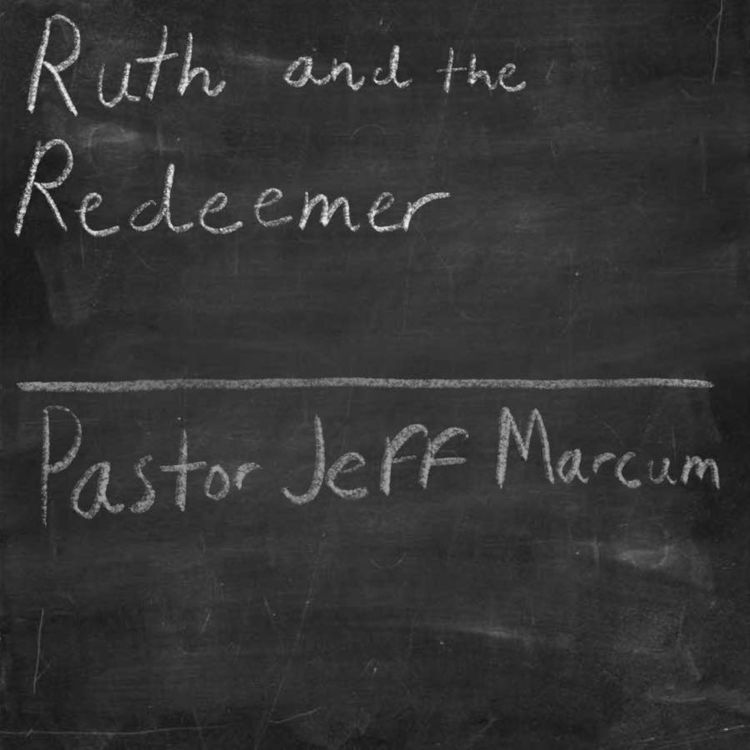 Ruth and the
Redeemer
Pastor Jeff Marcum